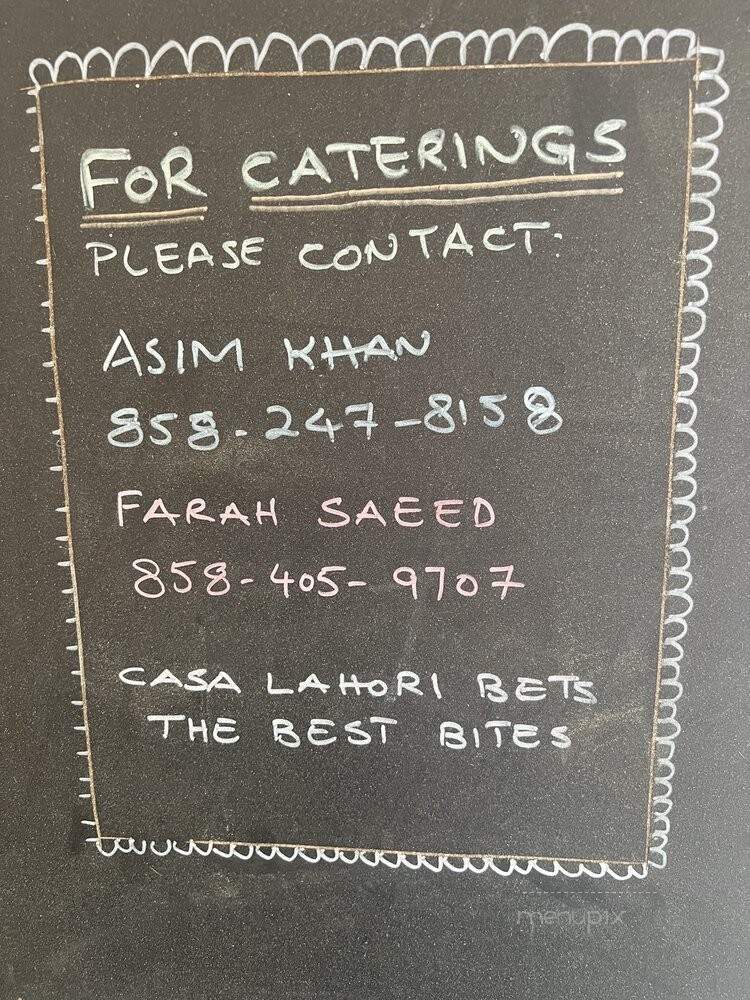 FOR CATERINGS
PLEASE CONTACT:
ASIM KHAN
858-247-8158
FARAH SAEED
858-405-9707
CASA LAHORI BETS
THE BEST BITES
menupix